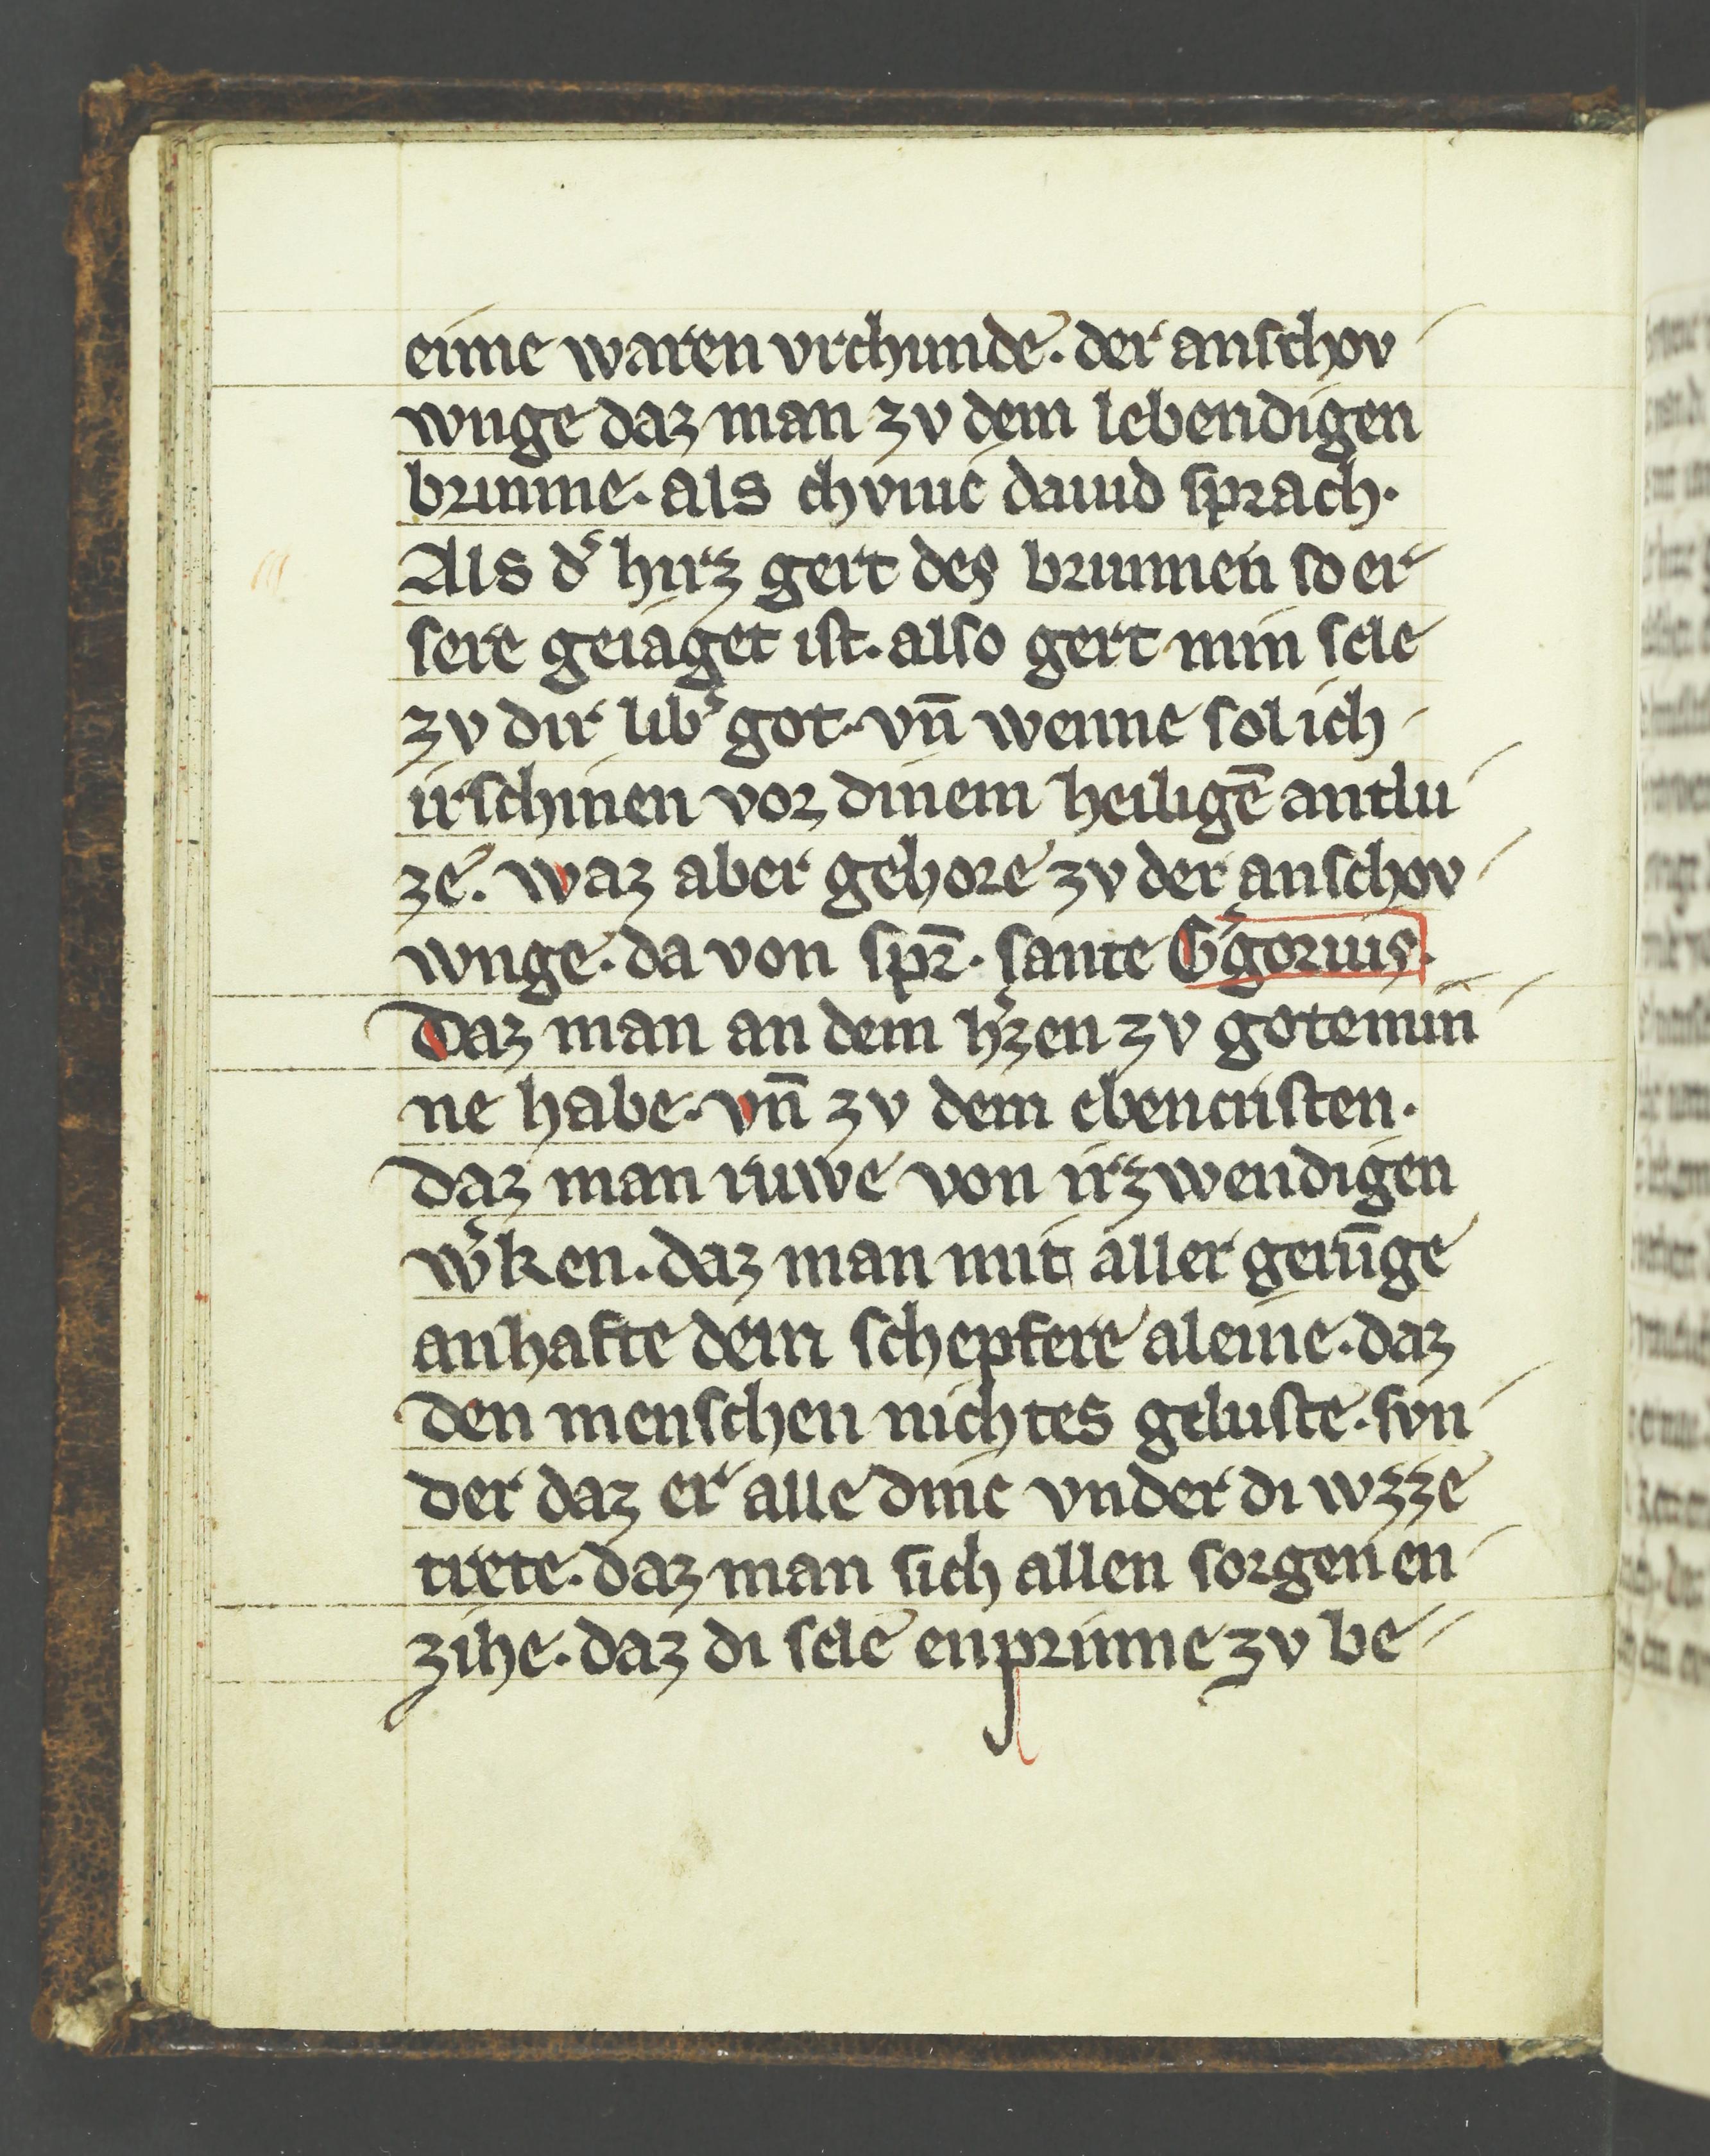 eime waren vrchunde. der anschov
wnge daz man zv dem lebendigen
brunne. als chvnic dauid sprach.
Als d͛ hirz gert des brunnen so er
sere geiaget ist. also gert min sele
zv dir lib͛ got. vn̄ wenne sol ich
irschinen vor dinem heiligē antlu
ze. waz aber gehore zv der anschov
wnge. da von spr̄. sante G͛gorius.
Daz man an dem h͛zen zv gote min
ne habe. vn̄ zv dem ebencristen.
Daz man ruwe von irzwendigen
w͛ken. daz man mit aller gerūge
anhafte dem schepfere aleine. daz
den menschen nichtes geluste. svn
der daz er alle dinc vnder di wzze
trete. daz man sich allen sorgen en
zihe. daz di sele enprinne zv be